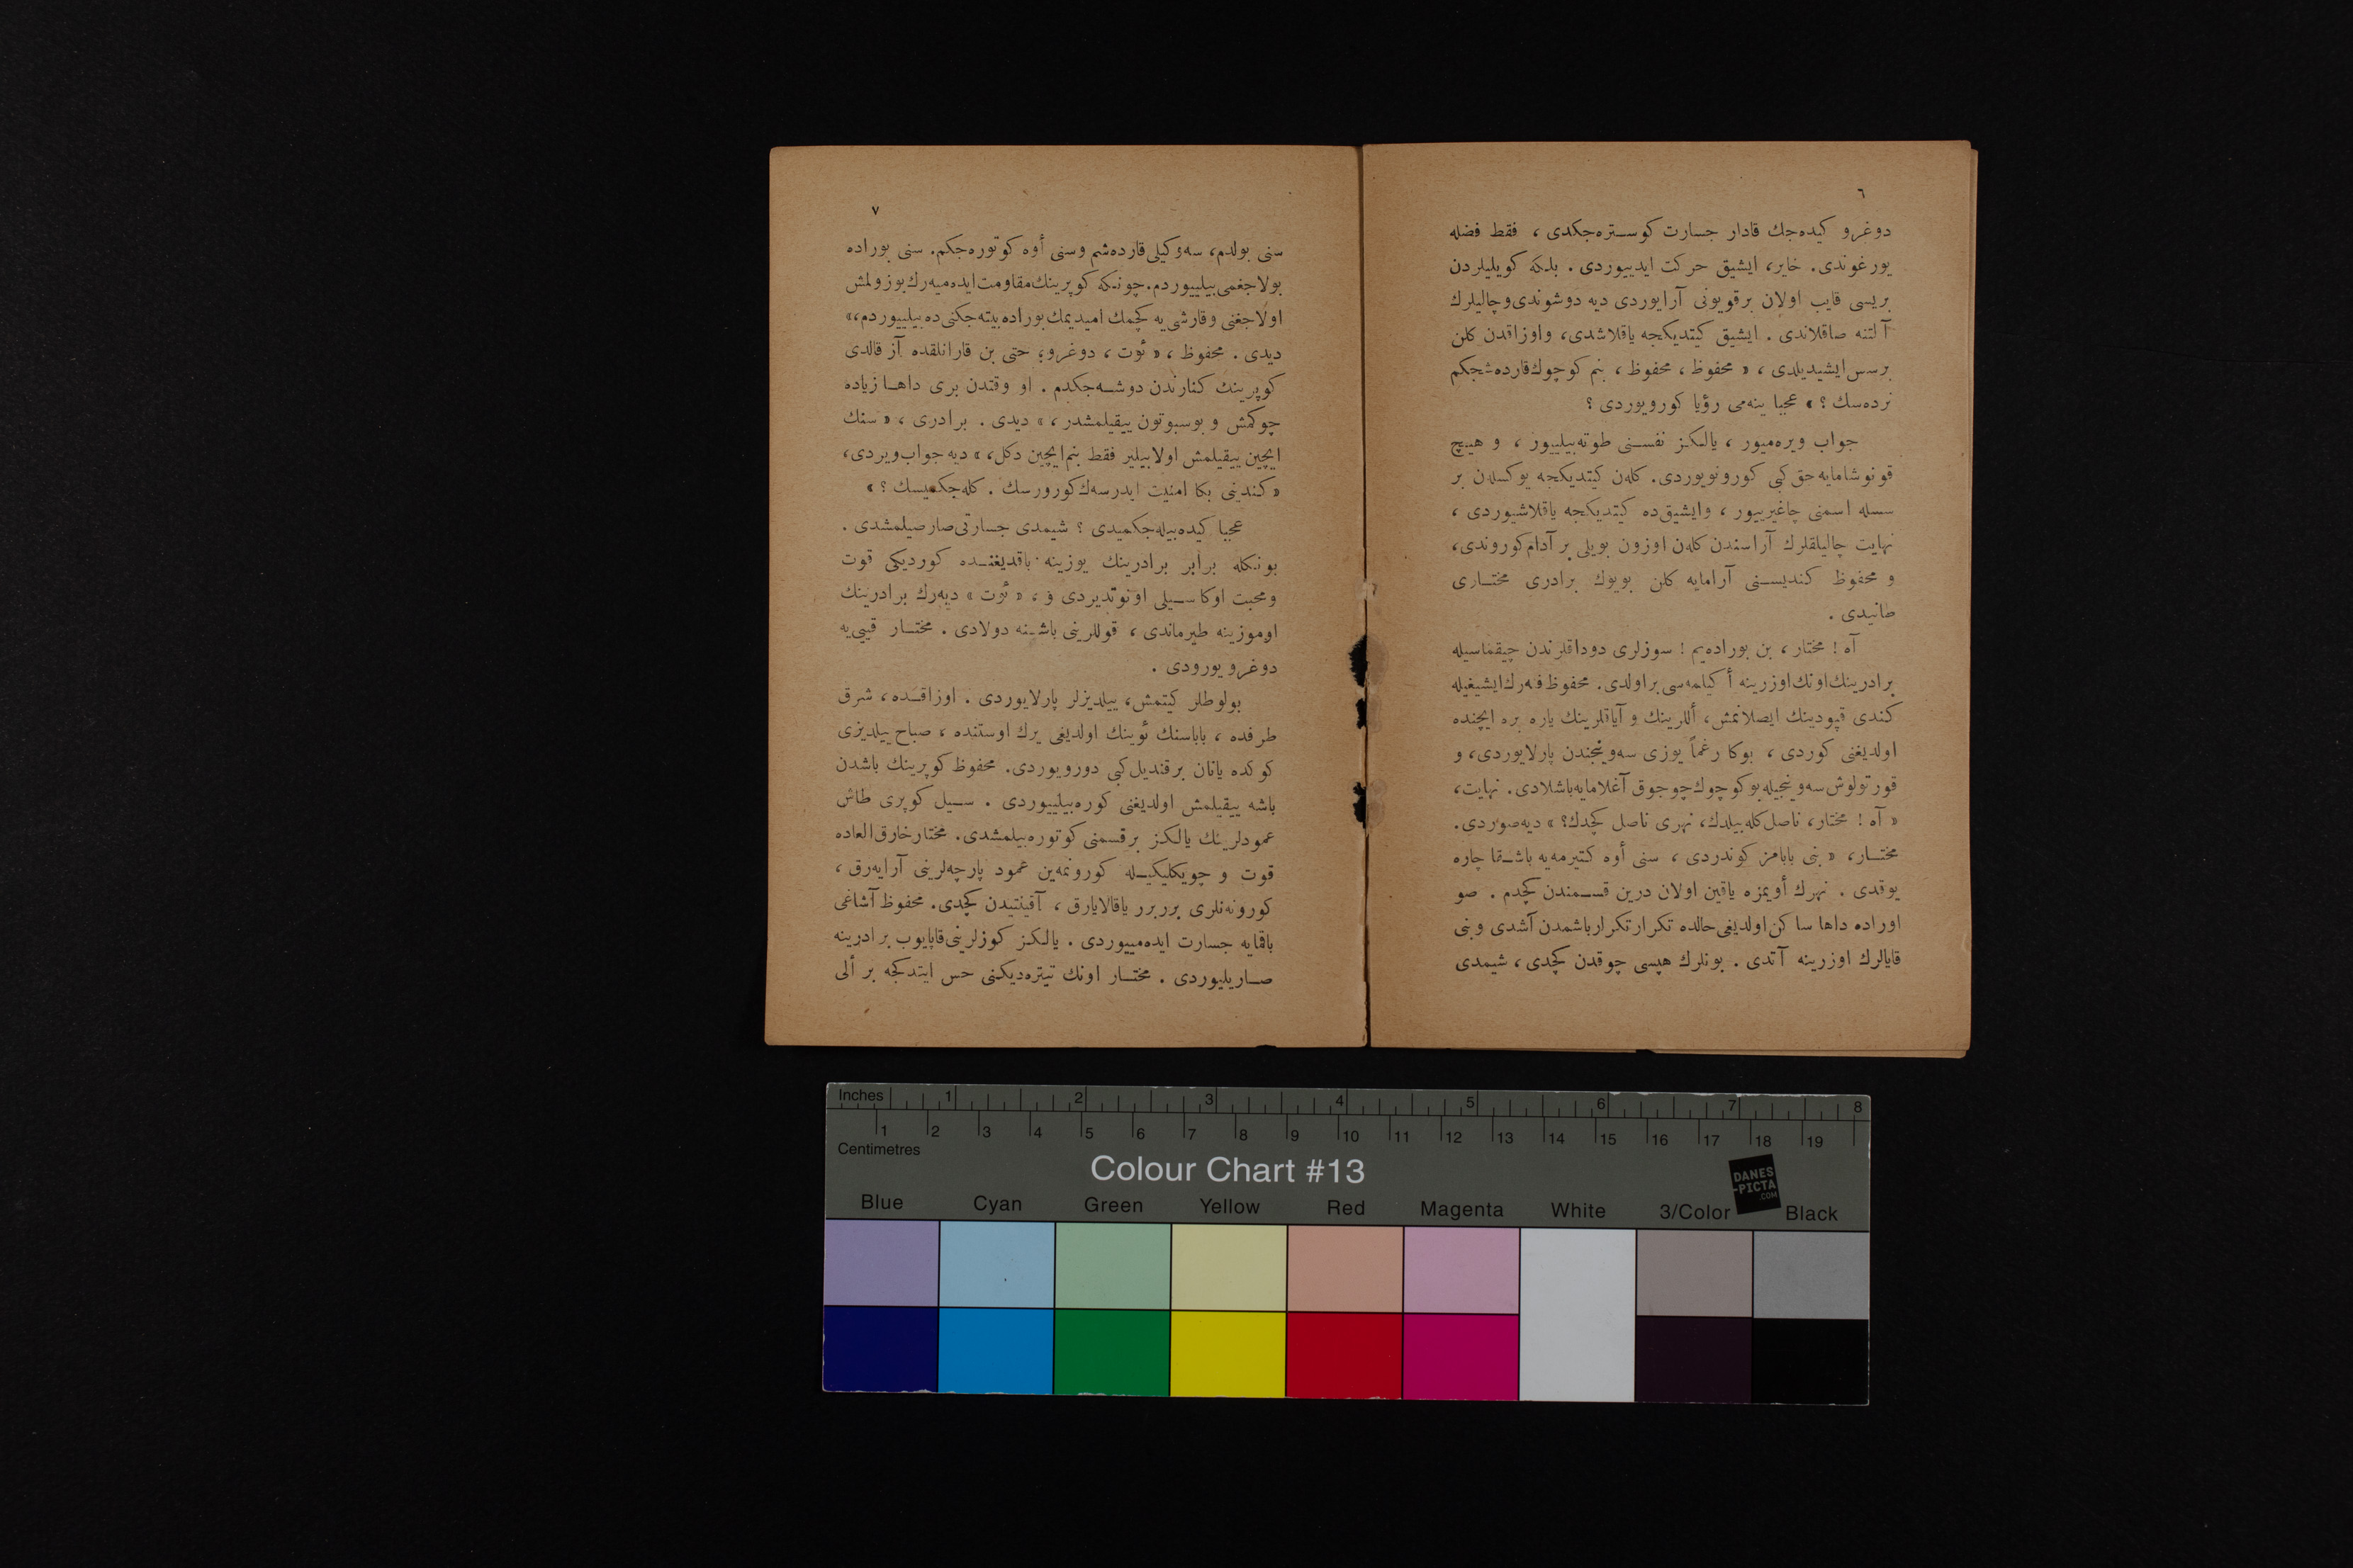 ٦
دوغرو كیده‌جك قادار جسارت كوستره‌جكدی ، فقط فضله
یورغوندی. خایر، ایشیق حركت ایدییوردی . بلكه كویلیلردن
بریسی قایب اولان برقویونی آرایوردی دیه دوشوندی وچالیلرك
آلتنه صاقلاندی . ایشیق كیتدیكجه یاقلاشدی، واوزاقدن كلن
برسس ایشیدیلدی ، « محفوظ ، محفوظ ، بنم كوچوك قارده‌شجكم
نرده‌سك ؟ » عجبا ینه‌می رؤیا كورویوردی ؟
جواب ویره‌میور ، یالكز نفسنی طوته‌بیلییور ، و هیچ
قونوشامایه حق كبی كورونویوردی. كلەن كیتدیكجه یوكسلەن بر
سسله اسمنی چاغیرییور ، وایشیق‌ده كیتدیكجه یاقلاشیوردی ،
نهایت چالیلقلرك آراسندن كلەن اوزون بویلی بر آدام كوروندی،
و محفوظ كندیسنی آرامایه كلن بویوك برادری مختاری
طانیدی .
آه ! مختار ، بن بوراده‌یم ! سوزلری دوداقلرندن چیقماسیله
برادرینك اونك اوزرینه أكیلمه‌سی براولدی. محفوظ فەرك ایشیغیله
كندی قپودینك ایصلانمش، أللرینك و آیاقلرینك یاره بره ایچنده
اولدیغنی كوردی ، بوكا رغماً یوزی سه‌وینجندن پارلایوردی، و
قورتولوش سه‌وینجیله بوكوچوك چوجوق آغلامایه‌باشلادی. نهایت،
« آه ! مختار، ناصل كله‌بیلدك، نهری ناصل كچدك؟ » دیه‌صوردی.
مختار، « بنی بابامز كوندردی ، سنی أوه كتیرمه‌یه باشقا چاره
یوقدی . نهرك أویمزه یاقین اولان درین قسمندن كچدم . صو
اوراده داها ساكن اولدیغی حالده تكرار تكرار باشمدن آشدی وبنی
قایالرك اوزرینه آتدی . بونلرك هپسی چوقدن كچدی ، شیمدی
٧
سنی بولدم، سه‌وكیلی قارده‌شم وسنی أوه كوتوره‌جكم. سنی بوراده
بولاجغمی بیلییوردم. چونكه كوپرینك مقاومت ایده‌میه‌رك بوزولمش
اولاجغنی وقارشی‌یه كچمك امیدیمك بوراده بیته‌جكنی ده بیلییوردم،»
دیدی . محفوظ ، « ئوت ، دوغرو؛ حتی بن قارانلقده آز قالدی
كوپرینك كنارندن دوشه‌جكدم . او وقتدن بری داها زیاده
چوكمش و بوسبوتون ییقیلمشدر ، » دیدی . برادری ، « سنك
ایچین ییقیلمش اولابیلیر فقط بنم ایچین دكل، » دیه جواب ویردی،
« كندینی بكا امنیت ایدرسه‌ك كورورسك . كله‌جكمیسك ؟ »
عجبا كیده‌بیله‌جكمیدی ؟ شیمدی جسارتی صارصیلمشدی .
بونكله برابر برادرینك یوزینه باقدیغنده كوردیكی قوت
ومحبت اوكا سیلی اونوتدیردی و ، « ئوت » دیه‌رك برادرینك
اوموزینه طیرماندی ، قوللرینی باشینه دولادی . مختار قیی‌یه
دوغرو یورودی .
بولوطلر كیتمش، ییلدیزلر پارلایوردی . اوزاقده ، شرق
طرفده ، باباسنك ئوینك اولدیغی یرك اوستنده ، صباح ییلدیزی
كوكده یانان برقندیل كبی دورویوردی. محفوظ كوپرینك باشدن
باشه ییقیلمش اولدیغنی كوره‌بیلییوردی . سیل كوپری طاش
عمودلرینك یالكز برقسمنی كوتوره‌بیلمشدی. مختار خارق‌العاده
قوت و چویكلیكیله كورونمەین عمود پارچه‌لرینی آرایه‌رق ،
كورونه‌نلری برربرر یاقالایارق ، آقینتیدن كچدی. محفوظ آشاغی
باقمایه جسارت ایده‌مییوردی . یالكز كوزلرینی قاپایوب برادرینه
صاریلیوردی . مختار اونك تیتره‌دیكنی حس ایتدكجه بر ألی
Inches 1 2 3 4 5 6 7 8
1 2 3 4 5 6 7 8 9 10 11 12 13 14 15 16 17 18 19
Centimetres
Colour Chart #13
DANES
-PICTA
.COM
Blue Cyan Green Yellow Red Magenta White 3/Color Black